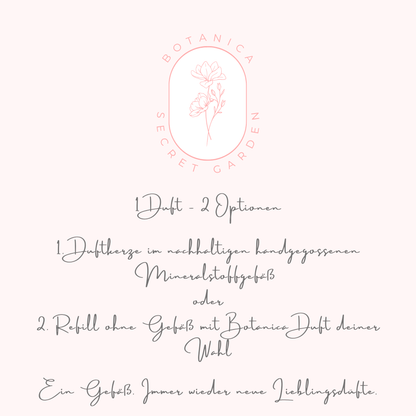 BOTANICA
SECRET GARDEN
1 Duft - 2 Optionen
1. Duftkerze im nachhaltigen handgegossenen
Mineralstoffgefäß
oder
2. Refill ohne Gefäß mit Botanica Duft deiner
Wahl
Ein Gefäß. Immer wieder neue Lieblingsdüfte.